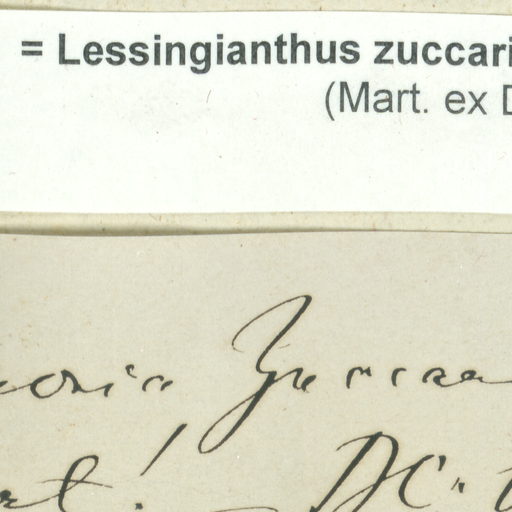 = Lessingianthus zuccari
(Mart. ex D
onia Zuccar
rt! DC.